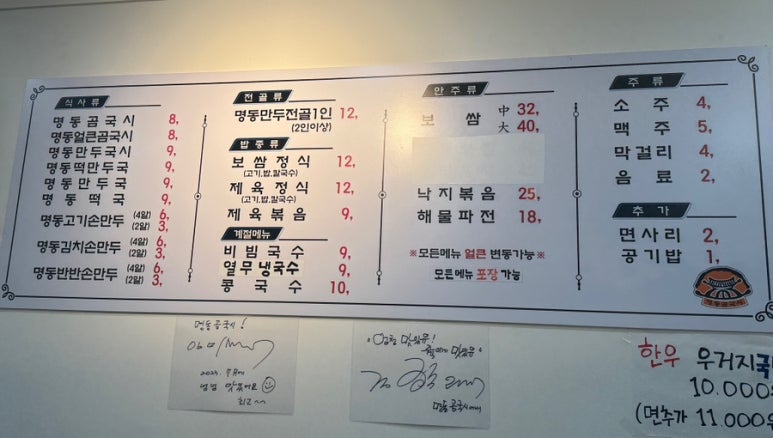 식사류
명동곰국시 8,
명동얼큰곰국시 8,
명동만두국시 9,
명동떡만두국 9,
명동만두국 9,
명동떡국 9,
명동고기손만두 (4알) 6,
(2알) 3,
명동김치손만두 (4알) 6,
(2알) 3,
명동반반손만두 (4알) 6,
(2알) 3,
전골류
명동만두전골1인 12,
(2인이상)
밥종류
보쌈정식 12,
(고기,밥,칼국수)
제육정식 12,
(고기,밥,칼국수)
제육볶음 9,
계절메뉴
비빔국수 9,
열무냉국수 9,
콩국수 10,
안주류
보쌈 中 32,
大 40,
낙지볶음 25,
해물파전 18,
※모든메뉴 얼큰 변동가능※
모든메뉴 포장 가능
주류
소주 4,
맥주 5,
막걸리 4,
음료 2,
추가
면사리 2,
공기밥 1,
명동곰국시
명동곰국시!
맛있어요
최고~
한우 우거지국
10.000
(면추가 11.000원